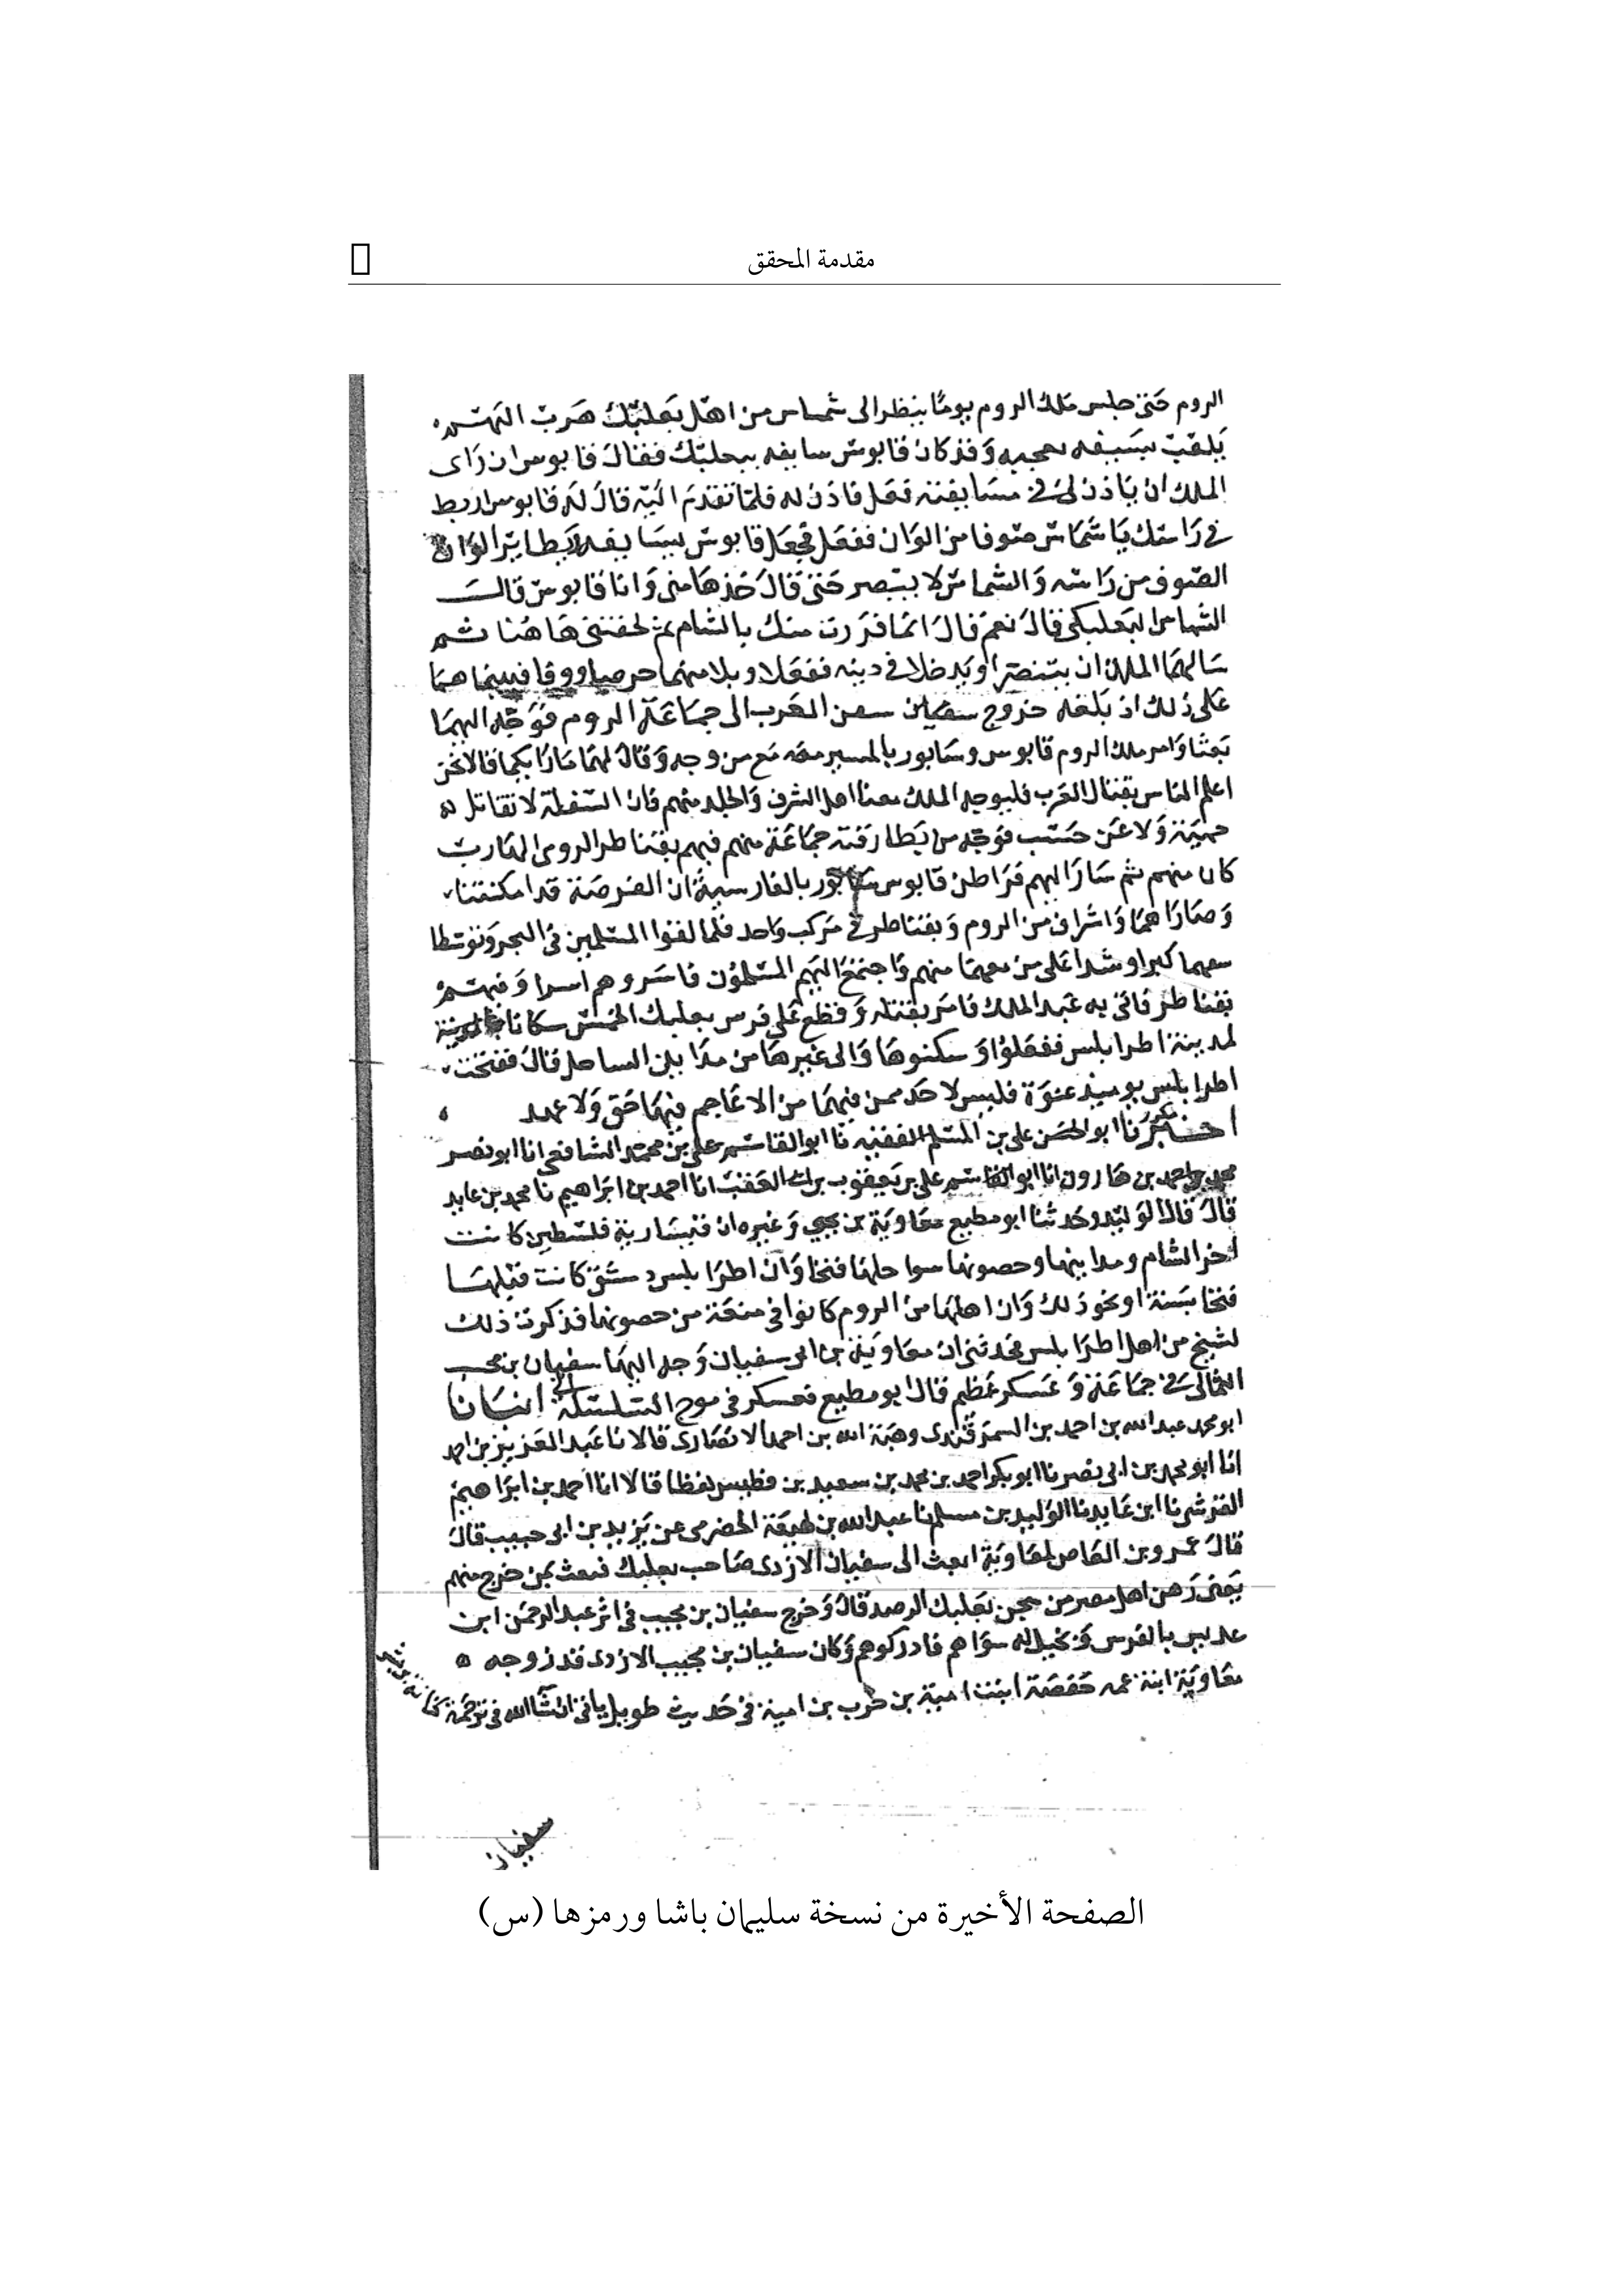 مقدمة المحقق
الروم حتى جلس ملك الروم يوما ينظر الى شماس من اهل بعلبك هرب اليهم
يلعب بسيفه وقد كان قابوس سايفه ببعلبك فقال قابوس ان راى
الملك ان ياذن لى فى مسايفته فعل فاذن له فلما تقدم اليه قال له قابوس اربط
فى راسك يا شماس صوفا من الوان ففعل فجعل قابوس يسايفه الوان
الصوف من راسه والشماس لا يبصر حتى قال خذها منى وانا قابوس قال
الشماس البعلبكى قال نعم قال انما فررت منك بالشام ثم لحقتنى هاهنا ثم
سالهما الملك ان يتنصرا ويدخلا فى دينه ففعلا فبينما هما
على ذلك اذ بلغه خروج سفن العرب الى جماعة الروم فوجه اليهما
بعثا وامر ملك الروم قابوس وسابور بالمسير مع من وجه وقال لهما قالا نحن
اعلم الناس بقتال العرب فليوجه الملك معنا اهل الشرف والجلد منهم فان السفلة لا تقاتل
حمية ولا عن حسب فوجه من بطارقته جماعة منهم فيهم بقناطر الرومى
كان منهم ثم سارا اليهم فراطن قابوس سابور بالفارسية ان الفرصة قد امكنتنا
وصارا هما واشراف من الروم وبقناطر فى مركب واحد فلما لقوا المسلمين فى البحر وتوسطا
كبرا وشدا على من معهما منهم واجتمع اليهم المسلمون فاسروهم اسرا وفيهم
بقناطر فاتى به عبد الملك فامر بقتله وقطع على فرس بعلبك
لمدينة اطرابلس ففعلوا وسكنوها والى غيرها من مداين الساحل قال ففتحت
اطرابلس يوميذ عنوة فليس لاحد ممن فيها من الاعاجم فيها حق ولا عهد
اخبرنا ابو الحسن على بن المسلم الفقيه نا ابو القاسم على بن محمد الشافعى انا ابو نصر
محمد بن احمد بن هارون انا ابو القاسم على بن يعقوب بن العقب انا احمد بن ابراهيم نا محمد بن عايد
قال قال الوليد وحدثنا ابو مطيع معاوية بن يحيى وغيره ان قيسارية فلسطين كانت
اخر الشام ومداينها وحصونها سواحلها فتحا وان اطرابلس دمشق كانت قبلها
فتحا بسنة او نحو ذلك وان اهلها من الروم كانوا فى منعة من حصونها فذكرت ذلك
لشيخ من اهل اطرابلس فحدثنى ان معاوية بن ابى سفيان وجه اليها سفيان بن مجيب
الثمالى فى جماعة وعسكر عظيم قال ابو مطيع فعسكر فى مرج السلسلة انبانا
ابو محمد عبد الله بن احمد بن السمرقندى وهبة الله بن احمد الانصارى قالا نا عبد العزيز بن احمد
انا ابو محمد بن ابى نصر نا ابو بكر احمد بن محمد بن سعيد بن فطيس لفظا قالا انا احمد بن ابراهيم
القرشى نا ابن عايد نا الوليد بن مسلم نا عبد الله بن لهيعة الحضرمى عن يزيد بن ابى حبيب قال
قال عمرو بن العاص لمعاوية ابعث الى سفيان الازدى صاحب بعلبك فبعث بمن خرج منهم
يعنى رهن اهل مصر من سجن بعلبك الرصد قال وخرج سفيان بن مجيب فى اثر عبد الرحمن ابن
عديس بالفرس وخيل له سواهم فادركوهم وكان سفيان بن مجيب الازدى قد زوجه
معاوية ابنة عمه حفصة ابنت امية بن حرب بن امية فى حديث طويل ياتى ان شا الله فى ترجمة كنانة بن بشر
سفيان
الصفحة الأخيرة من نسخة سليمان باشا ورمزها (س)